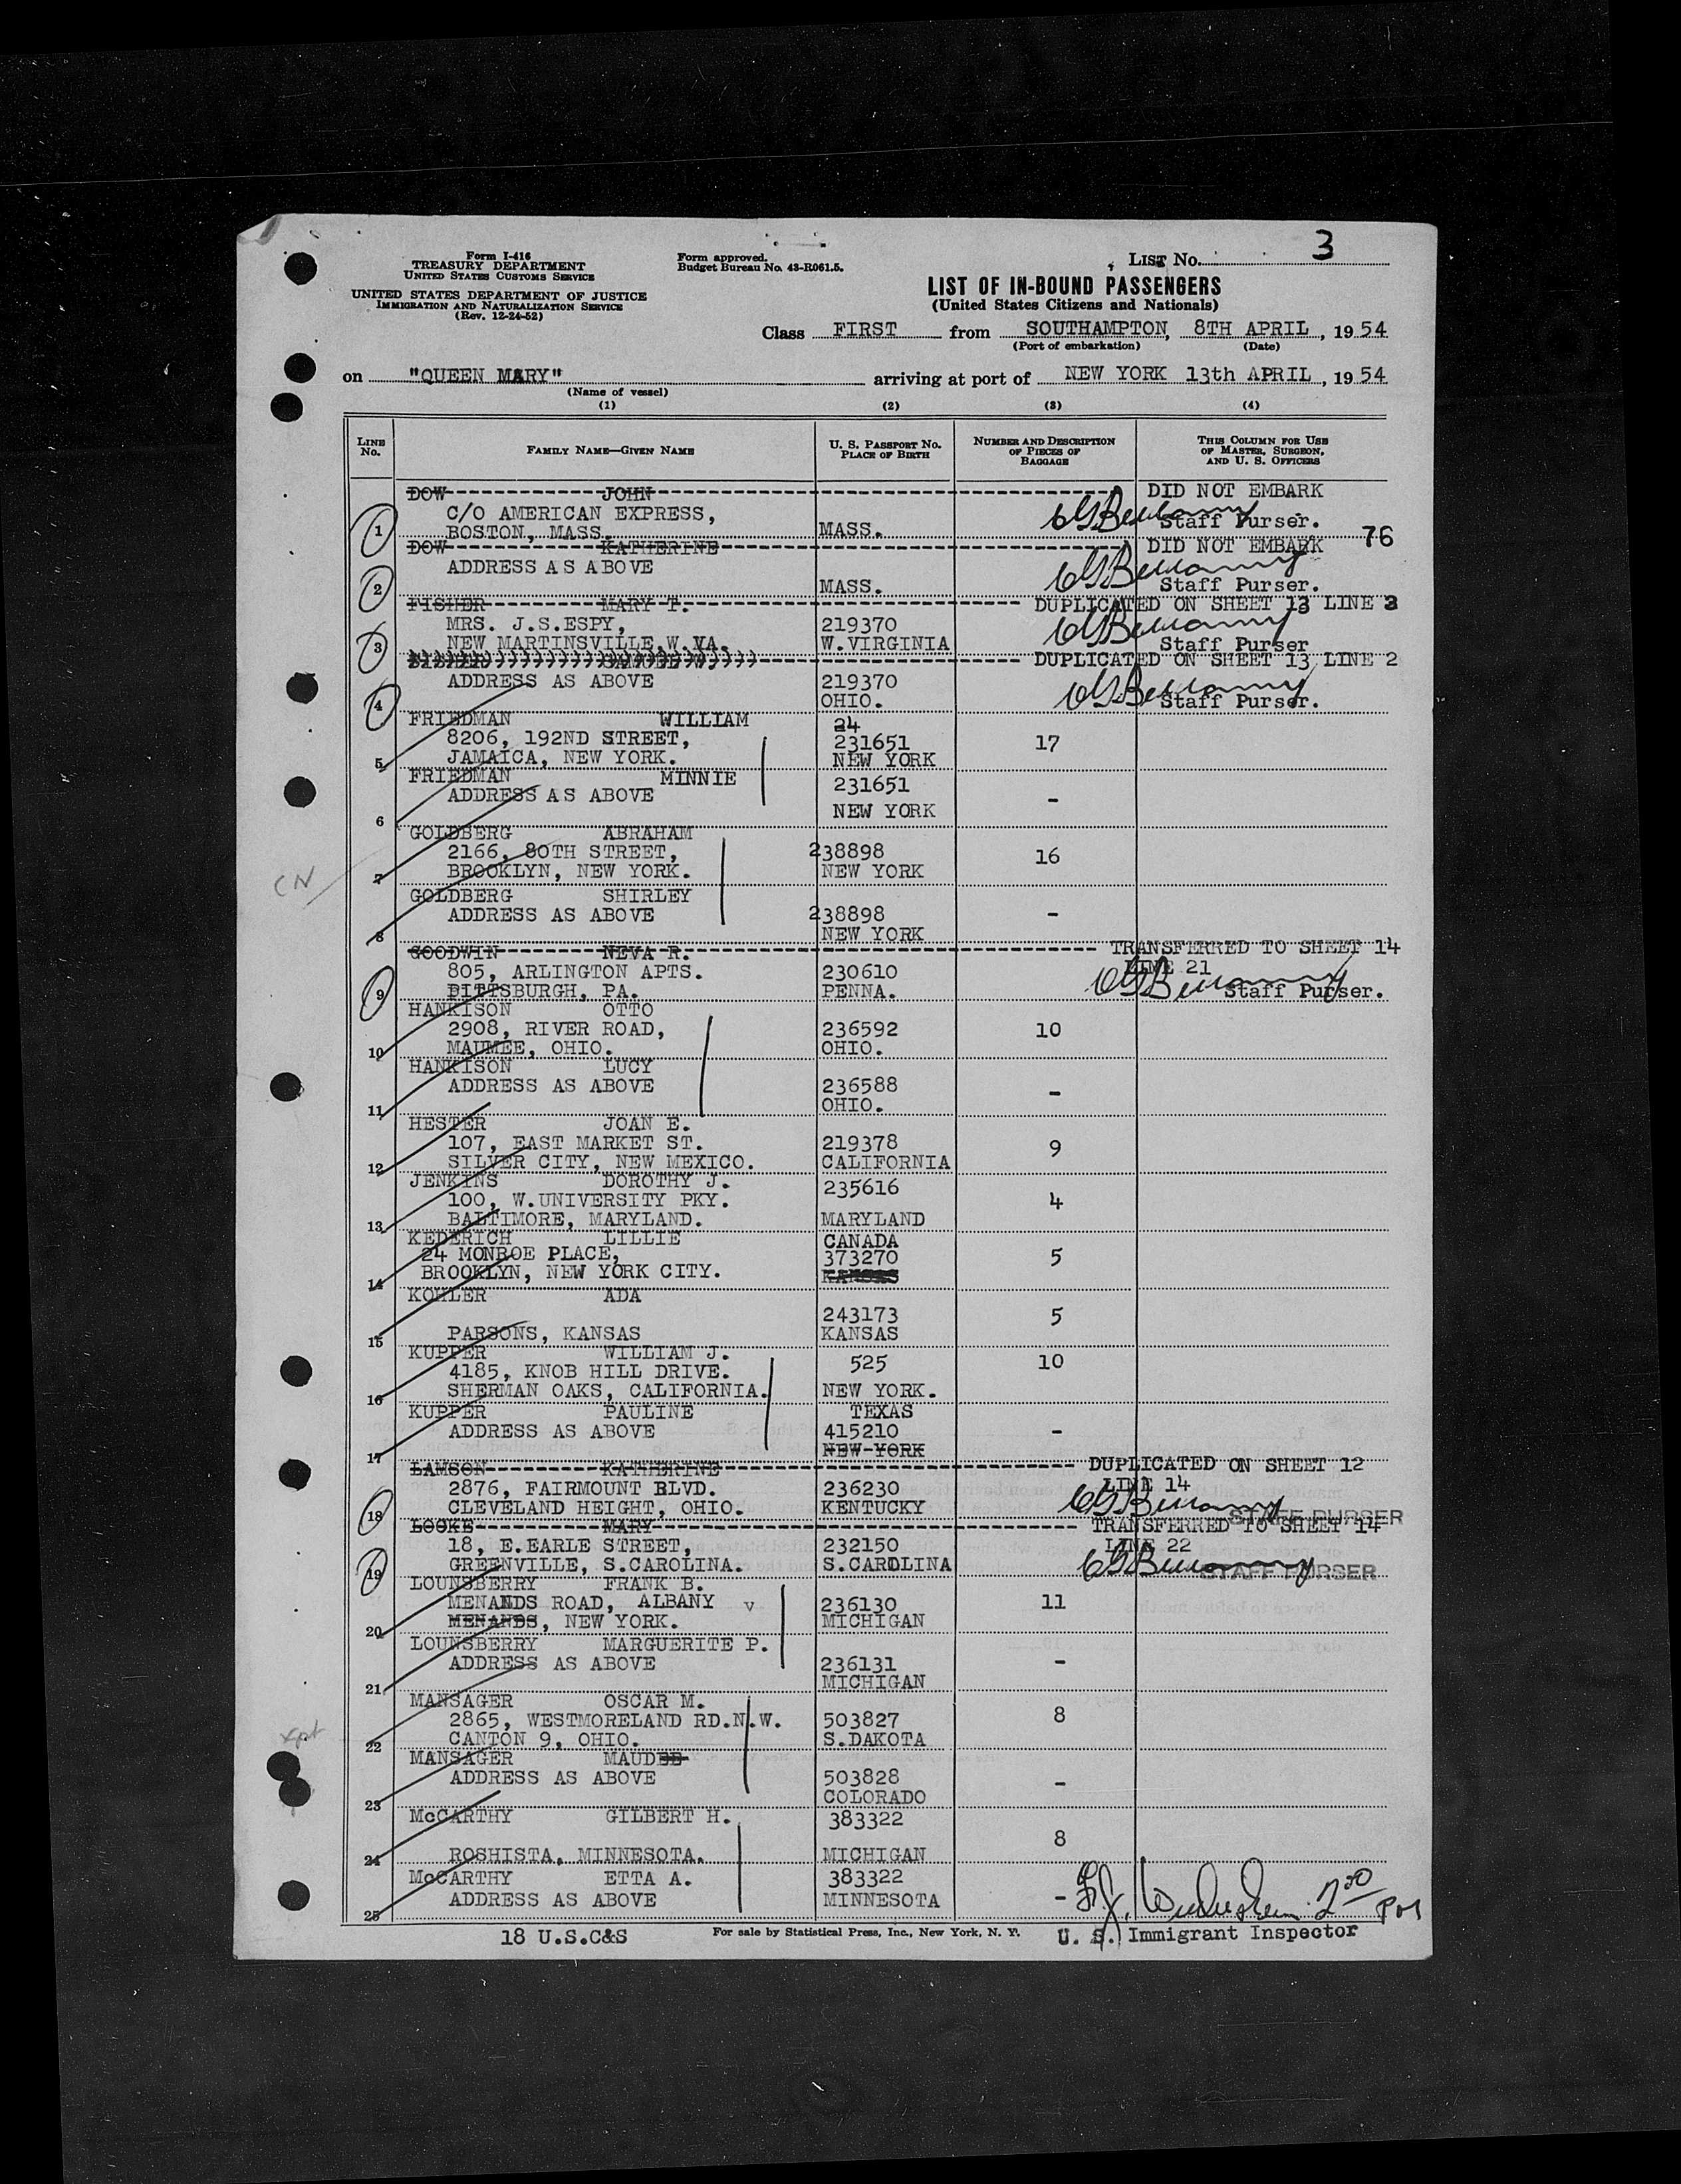 3
Form I-416
TREASURY DEPARTMENT
UNITED STATES CUSTOMS SERVICE
UNITED STATES DEPARTMENT OF JUSTICE
IMMIGRATION AND NATURALIZATION SERVICE
(Rev. 12-24-52)
Form approved.
Budget Bureau No. 43-R061.5.
LIST No.
LIST OF IN-BOUND PASSENGERS
(United States Citizens and Nationals)
Class FIRST from SOUTHAMPTON, 8TH APRIL, 1954
(Port of embarkation) (Date)
on "QUEEN MARY" arriving at port of NEW YORK 13th APRIL, 1954
(Name of vessel)
(1) (2) (3) (4)
LINE No. FAMILY NAME—GIVEN NAME U. S. PASSPORT No. PLACE OF BIRTH NUMBER AND DESCRIPTION OF PIECES OF BAGGAGE THIS COLUMN FOR USE OF MASTER, SURGEON, AND U. S. OFFICERS
DOW JOHN DID NOT EMBARK
C/O AMERICAN EXPRESS, Staff Purser.
1 BOSTON, MASS. MASS. 76
DOW KATHERINE DID NOT EMBARK
ADDRESS AS ABOVE
2 MASS. Staff Purser.
FISHER MARY T. DUPLICATED ON SHEET 13 LINE 3
MRS. J.S.ESPY, 219370
3 NEW MARTINSVILLE,W.VA. W.VIRGINIA Staff Purser
FISHER SAMUEL W. DUPLICATED ON SHEET 13 LINE 2
ADDRESS AS ABOVE 219370
4 OHIO. Staff Purser.
FRIEDMAN WILLIAM 24
8206, 192ND STREET, 231651 17
5 JAMAICA, NEW YORK. NEW YORK
FRIEDMAN MINNIE 231651
ADDRESS AS ABOVE -
6 NEW YORK
GOLDBERG ABRAHAM
2166, 80TH STREET, 238898 16
CN 7 BROOKLYN, NEW YORK. NEW YORK
GOLDBERG SHIRLEY
ADDRESS AS ABOVE 238898 -
8 NEW YORK
GOODWIN NEVA R. TRANSFERRED TO SHEET 14
805, ARLINGTON APTS. 230610 LINE 21
9 PITTSBURGH, PA. PENNA. Staff Purser.
HANKISON OTTO
2908, RIVER ROAD, 236592 10
10 MAUMEE, OHIO. OHIO.
HANKISON LUCY
ADDRESS AS ABOVE 236588 -
11 OHIO.
HESTER JOAN E.
107, EAST MARKET ST. 219378 9
12 SILVER CITY, NEW MEXICO. CALIFORNIA
JENKINS DOROTHY J. 235616
100, W.UNIVERSITY PKY. 4
13 BALTIMORE, MARYLAND. MARYLAND
KEDERICH LILLIE CANADA
24 MONROE PLACE, 373270 5
14 BROOKLYN, NEW YORK CITY. KANSAS
KOHLER ADA
243173 5
15 PARSONS, KANSAS KANSAS
KUPPER WILLIAM J. 525 10
4185, KNOB HILL DRIVE.
16 SHERMAN OAKS, CALIFORNIA. NEW YORK.
KUPPER PAULINE TEXAS
ADDRESS AS ABOVE 415210 -
17 NEW YORK
LAMSON KATHERINE DUPLICATED ON SHEET 12
2876, FAIRMOUNT BLVD. 236230 LINE 14
18 CLEVELAND HEIGHT, OHIO. KENTUCKY STAFF PURSER
LOOKE MARY TRANSFERRED TO SHEET 14
18, E.EARLE STREET, 232150 LINE 22
19 GREENVILLE, S.CAROLINA. S.CAROLINA STAFF PURSER
LOUNSBERRY FRANK B.
MENANDS ROAD, ALBANY v 236130 11
20 MENANDS, NEW YORK. MICHIGAN
LOUNSBERRY MARGUERITE P.
ADDRESS AS ABOVE 236131 -
21 MICHIGAN
MANSAGER OSCAR M.
2865, WESTMORELAND RD.N.W. 503827 8
22 CANTON 9, OHIO. S.DAKOTA
MANSAGER MAUD
ADDRESS AS ABOVE 503828 -
23 COLORADO
McCARTHY GILBERT H. 383322
8
24 ROSHISTA, MINNESOTA. MICHIGAN
McCARTHY ETTA A. 383322
25 ADDRESS AS ABOVE MINNESOTA - 2 30 PM
18 U.S.C&S For sale by Statistical Press, Inc., New York, N. Y. U. S. Immigrant Inspector